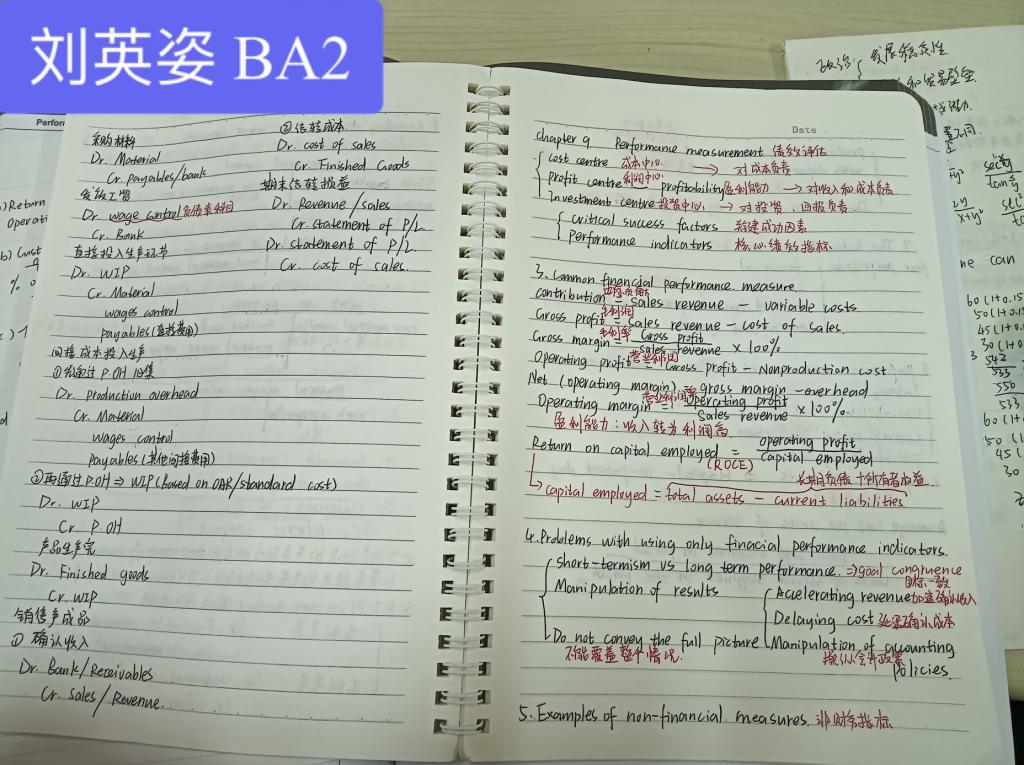 刘英姿 BA2
采购材料
Dr. Material
Cr. payables/bank
发放工资
Dr. wage control 负债类科目
Cr. Bank
直接投入生产环节
Dr. WIP
Cr. Material
wages control
payables (直接费用)
间接成本投入生产
①先通过P.OH归集
Dr. production overhead
Cr. Material
wages control
payables (其他间接费用)
②再通过P.OH ⇒ WIP (Based on OAR/standard cost)
Dr. WIP
Cr P.OH
产品生产完
Dr. Finished goods
Cr. WIP
销售产成品
① 确认收入
Dr. Bank/Receivables
Cr. Sales/Revenue.
②结转成本
Dr. cost of sales
Cr. Finished Goods
期末结转损益
Dr. Revenue/sales
Cr. statement of P/L
Dr. statement of P/L
Cr. cost of sales.
Date
chapter 9 Performance measurement 绩效评估
cost centre 成本中心 → 对成本负责
profit centre 利润中心 profitability 盈利能力 → 对收入和成本负责
Investment centre 投资中心 → 对投资、回报负责
critical success factors 关键成功因素
Performance indicators 核心绩效指标
3. Common financial performance measure.
contribution = sales revenue - variable costs
毛利润
Gross profit = Sales revenue - cost of sales.
毛利率
Gross margin = Gross profit / sales revenue × 100%
营业利润
Operating profit = Gross profit - Nonproduction cost
Net (operating margin) = gross margin - overhead
营业利润率
Operating margin = Operating profit / Sales revenue × 100%.
盈利能力:收入转为利润
Return on capital employed = operating profit / capital employed
(ROCE)
长期负债+所有者权益
capital employed = total assets - current liabilities
4. Problems with using only finacial performance indicators.
short-termism vs long term performance. ⇒ goal congruence
目标一致
Manipulation of results
Accelerating revenue 加速确认收入
Delaying cost 延迟确认成本
Do not convey the full picture
不能覆盖整个情况.
Manipulation of accounting
会计政策
policies.
5. Examples of non-financial measures. 非财务指标